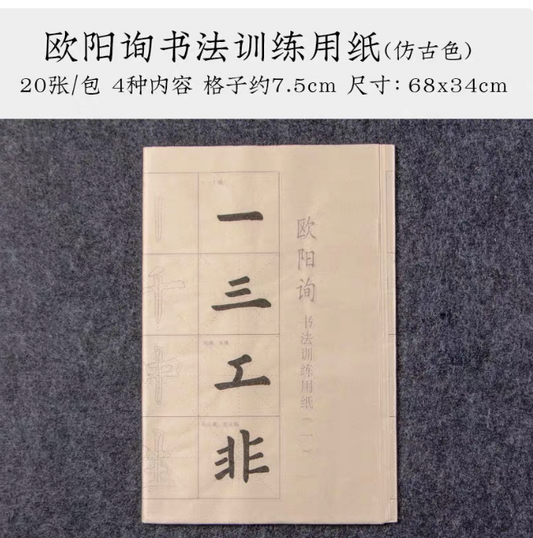 欧阳询书法训练用纸(仿古色)
20张/包 4种内容 格子约7.5cm 尺寸：68x34cm
欧阳询
书法训练用纸(一)
一
三
工
非